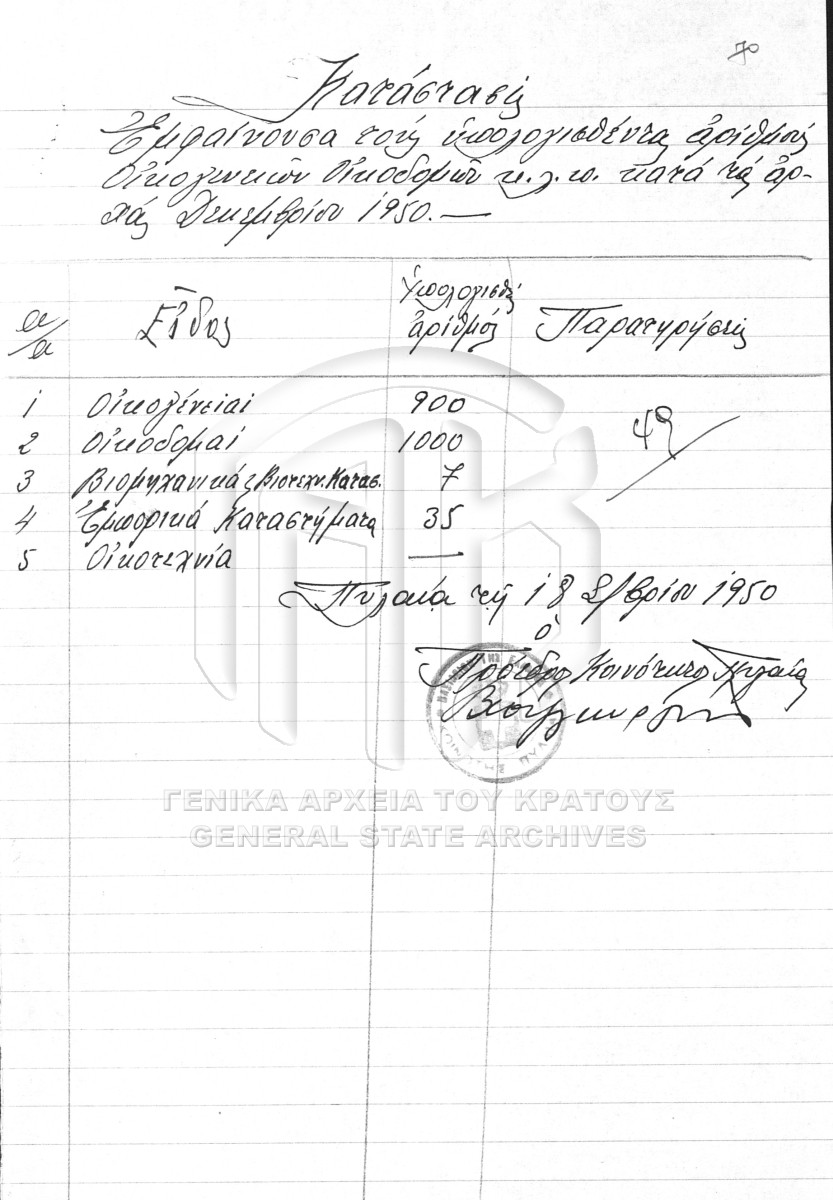 70
Κατάστασις
Ἐμφαίνουσα τούς ὑπολογισθέντας ἀριθμούς
Οἰκογενειῶν Οἰκοδομῶν κ.λ.π. κατά τάς ἀρ-
χάς Δεκεμβρίου 1950.—
α/α Εἶδος Ὑπολογισθείς ἀριθμός Παρατηρήσεις
1 Οἰκογένειαι 900
2 Οἰκοδομαί 1000
3 Βιομηχανικά & Βιοτεχν. Κατασ. 7
4 Ἐμπορικά Καταστήματα 35
5 Οἰκοτεχνία —
49
Πυλαία τῇ 18 /βρίου 1950
ὁ
Πρόεδρος Κοινότητος Πυλαίας
ΓΕΝΙΚΑ ΑΡΧΕΙΑ ΤΟΥ ΚΡΑΤΟΥΣ
GENERAL STATE ARCHIVES